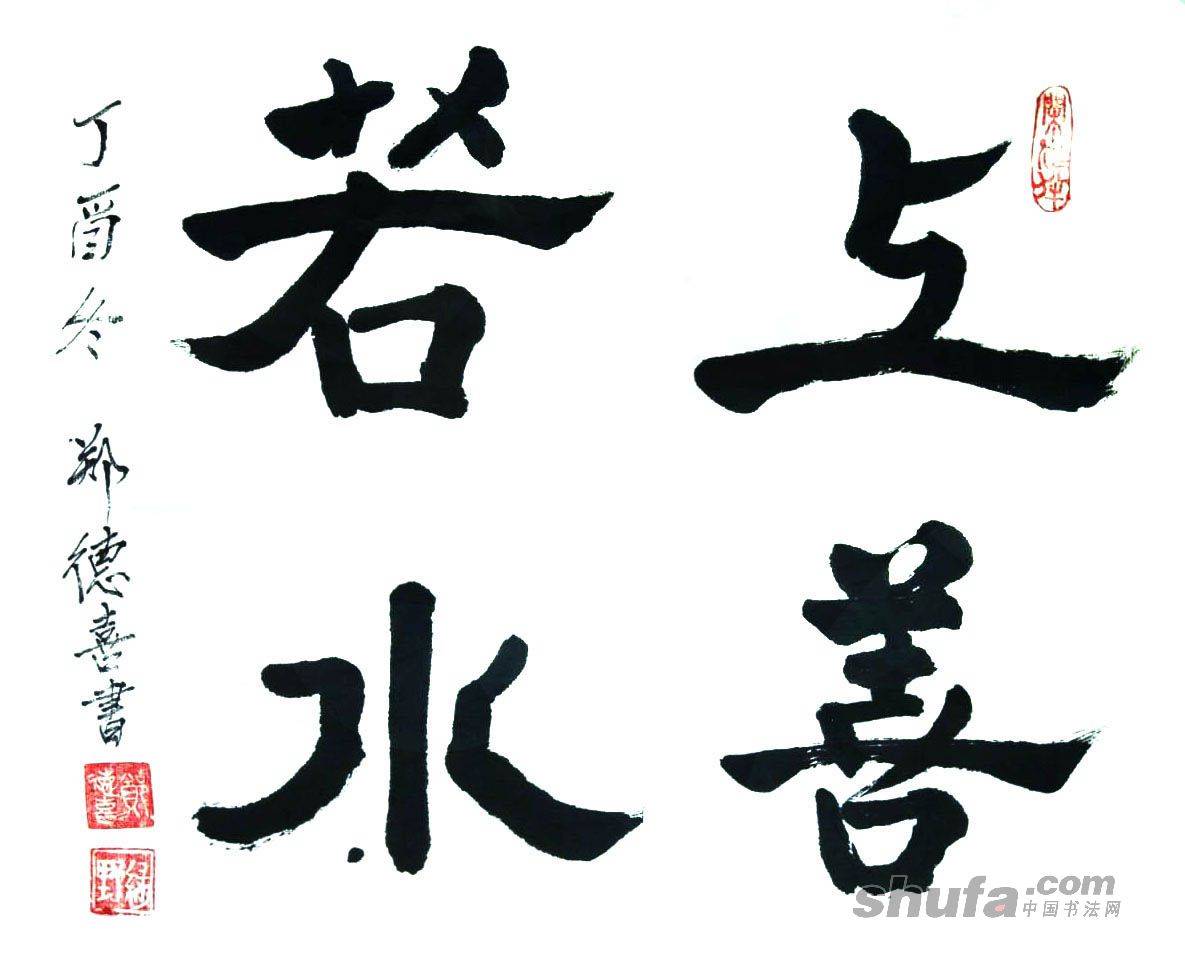 上善
若水
丁酉冬 郑德喜書
shufa.com
中国书法网